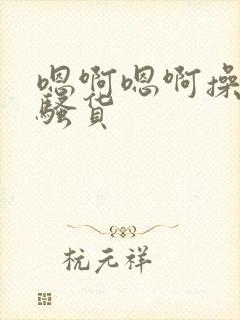 嗯啊嗯啊操
骚货
杭元祥